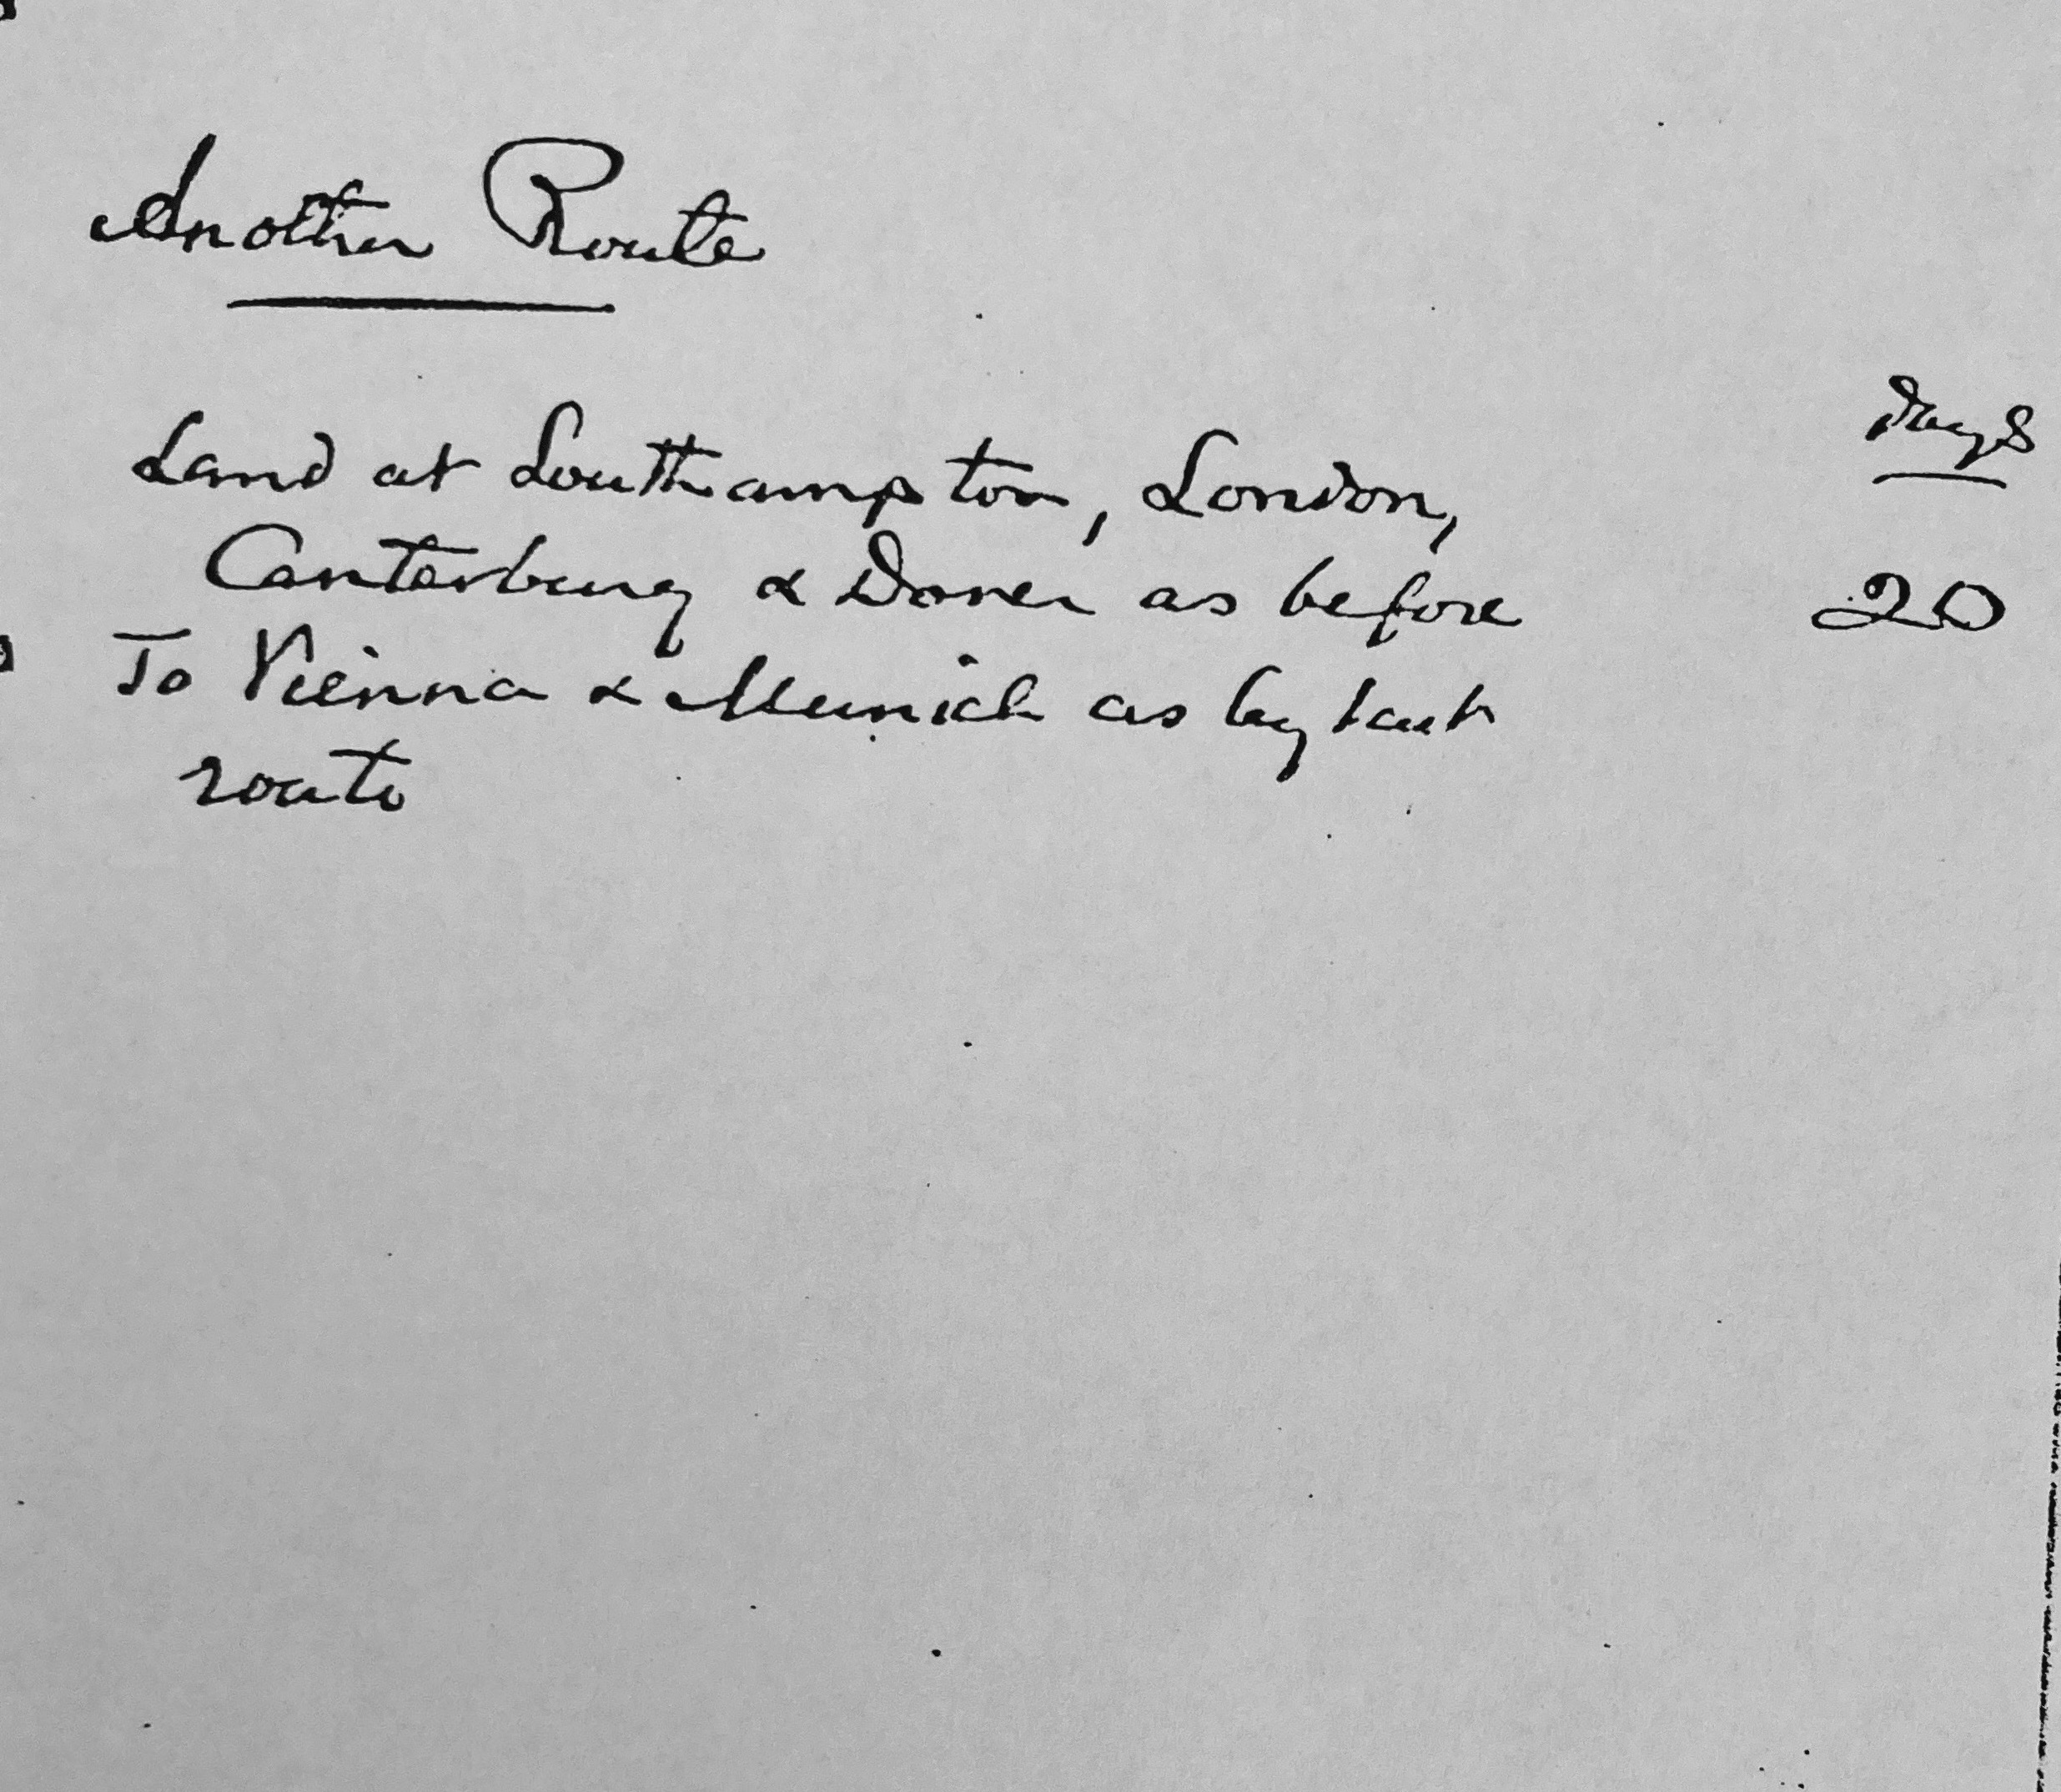 Another Route
Days
Land at Southampton, London,
Canterbury & Dover as before 20
To Vienna & Munich as by last
route